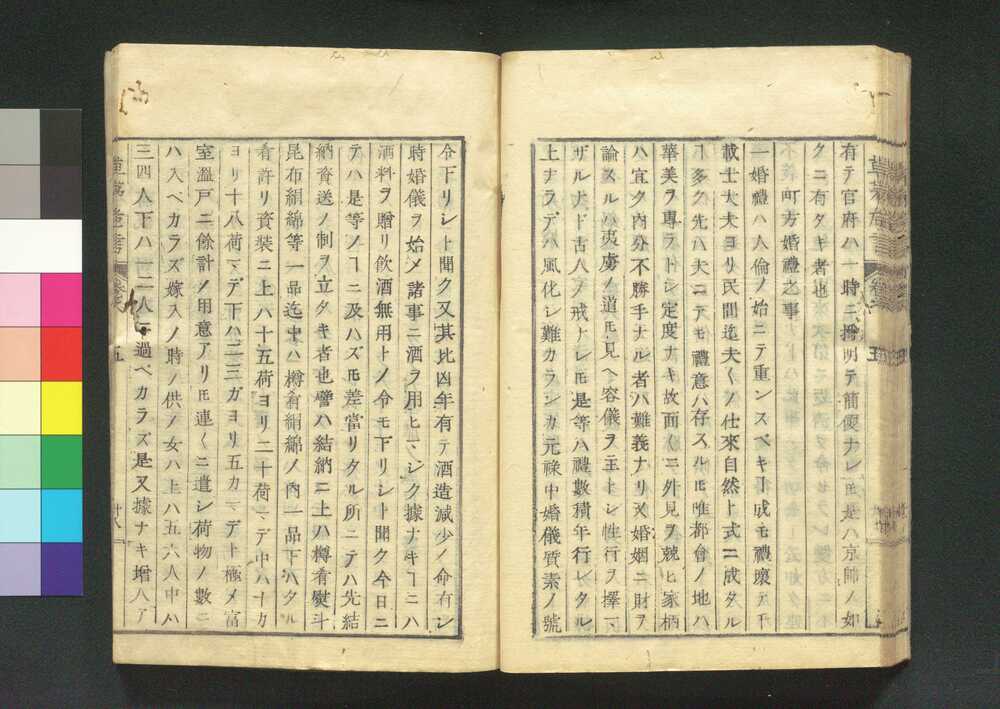 有テ官府ハ一時ニ撈明テ簡便ナレ𪜈是ハ京師ノ如
クニ有タキ者也
町方婚禮之事
一婚禮ハ人倫ノ始ニテ重ンスベキヿ成モ禮壞テ下
載士大夫ヨリ民間迄夫〱ノ仕來自然ト式ニ成タル
ヿ多ク先ハ夫ニテモ禮意ハ存スル𪜈唯都會ノ地ハ
華美ヲ專ラトシ定度ナキ故面〱ニ外見ヲ競ヒ家柄
ハ宜ク內分不勝手ナル者ハ難義ナリ又婚姻ニ財ヲ
論スルハ夷虜ノ道𪜈見ヘ容儀ヲ主トシ性行ヲ擇
ザルナド古人ノ戒ナレ𪜈是等ハ禮數積年行レタル
上ナラデハ風化シ難カランカ元祿中婚儀質素ノ號
令下リシト聞ク又其比凶年有テ酒造減少ノ命有シ
時婚儀ヲ始メ諸事ニ酒ヲ用ヒマシク據ナキヿニハ
酒料ヲ贈リ飲酒無用トノ令モ下リシト聞ク今日ニ
テハ是等ノヿニ及ハズ𪜈差當リタル所ニテハ先結
納資送ノ制ヲ立タキ者也譬ハ結納ニ上ハ樽肴熨斗
昆布絹綿等一品迄中ハ樽肴絹綿ノ內一品下ハタル
肴許リ資装ニ上ハ十五荷ヨリ二十荷マデ中ハ十カ
ヨリ十八荷マデ下ハ二三ガヨリ五カマデト極メ富
室溫戸ニ餘計ノ用意アリ𪜈連〱ニ遣シ荷物ノ數ニ
ハ入ベカラズ嫁入ノ時ノ供ノ女ハ上ハ五六人中ハ
三四人下ハ一二人ニ過ベカラズ是又據ナキ增ハア
草茅危言
五